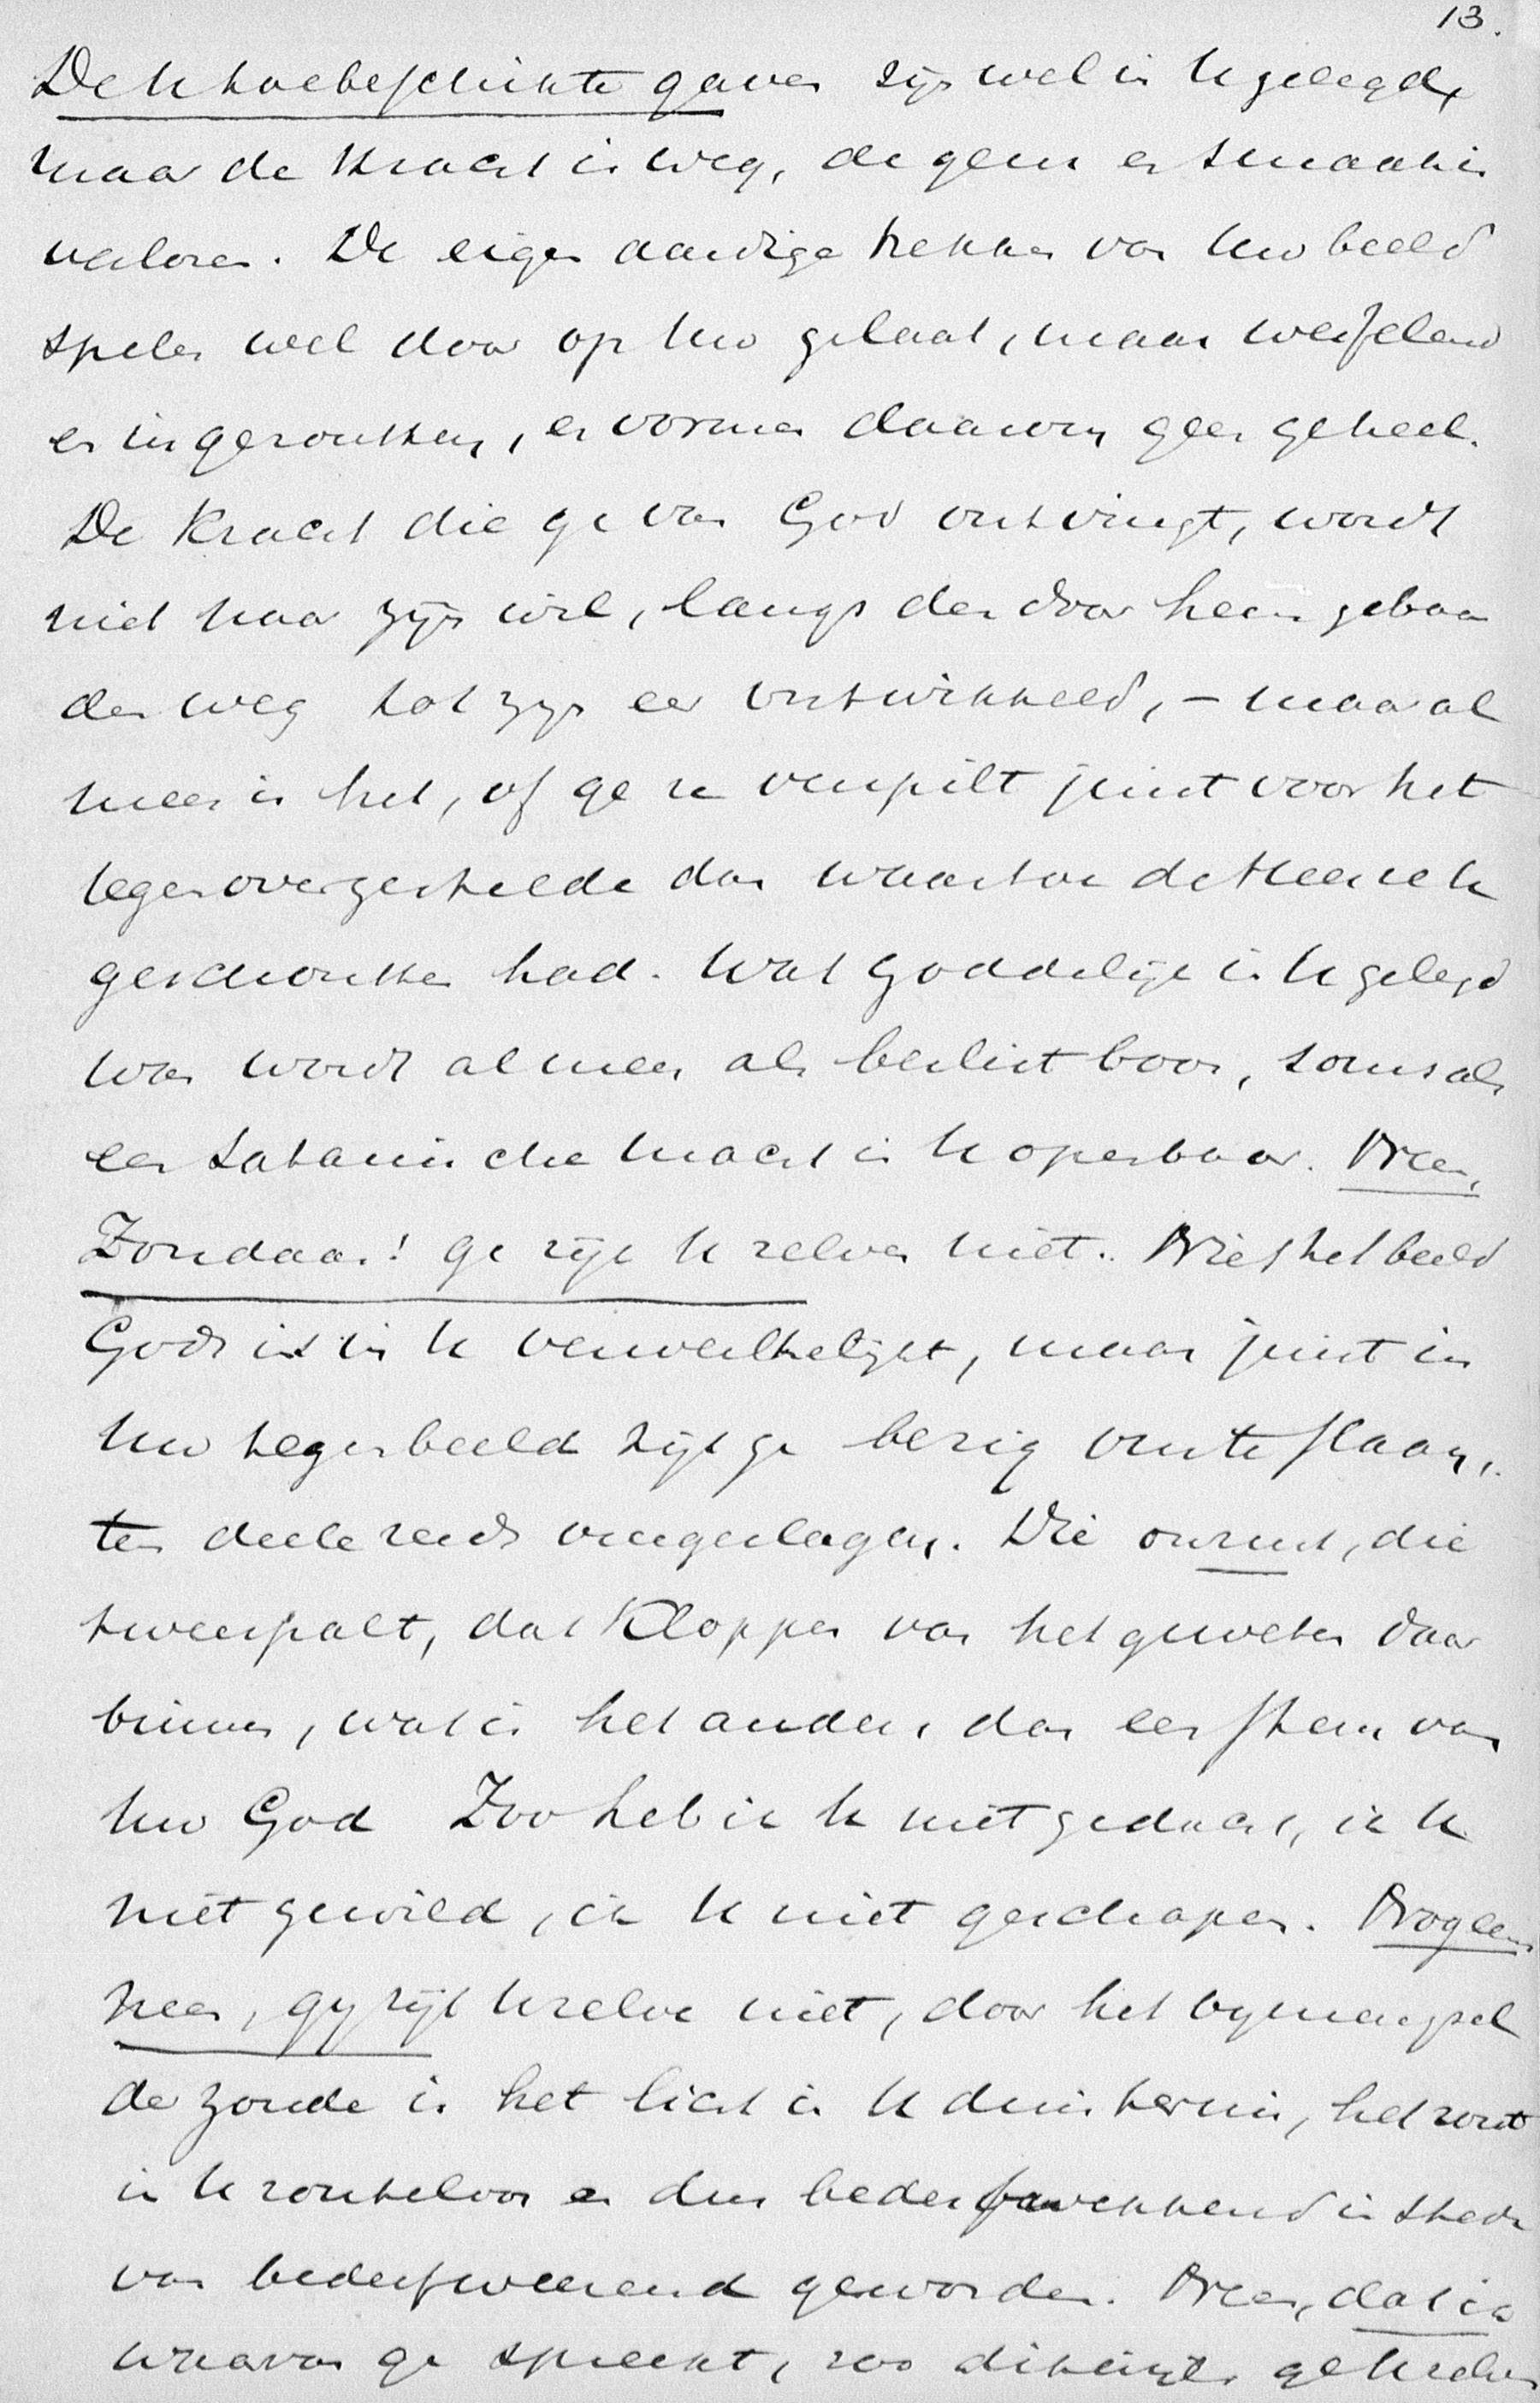 13.
De U toebeschikte gaven zijn wel in U gelegd,
maar de kracht is weg, de geur en smaak is
verloren. De eigenaardige trekken van Uw beeld
spelen wel door op Uw gelaat, maar weifelend
en ingezonken, en vormen daarom geen geheel.
De kracht die ge van God ontvingt, wordt
niet naar zijn wil, langs den door hem gebaan
den weg tot zijn eer ontwikkeld, – maar al
meer is het, of ge ze verspilt juist voor het
tegenovergestelde dan waartoe de Heer ze U
geschonken had. Wat Goddelijk in U gelegd
was wordt al meer als beslist boos, soms als
een Satanische macht in U openbaar. Neen,
Zondaar! ge zijt U zelven niet. Niet het beeld
Gods is in U verwerkelijkt, maar juist in
Uw tegenbeeld zijt ge bezig om te slaan,
ten deele reeds omgeslagen. Die onrust, die
tweespalt, dat kloppen van het geweten daar
binnen, wat is het anders dan een stem van
Uw God Zoo heb ik U niet gedacht, ik U
niet gewild, ik U niet geschapen. Nogeens
neen, gij zijt Uzelve niet, door het bijmengsel
der zonde is het licht in U duisternis, het zout
in U zouteloos en dus bederfwekkend in stede
van bederfwerend geworden. Neen, dat ik
waarvan ge spreekt, zoo dikwijls ge Uzelven